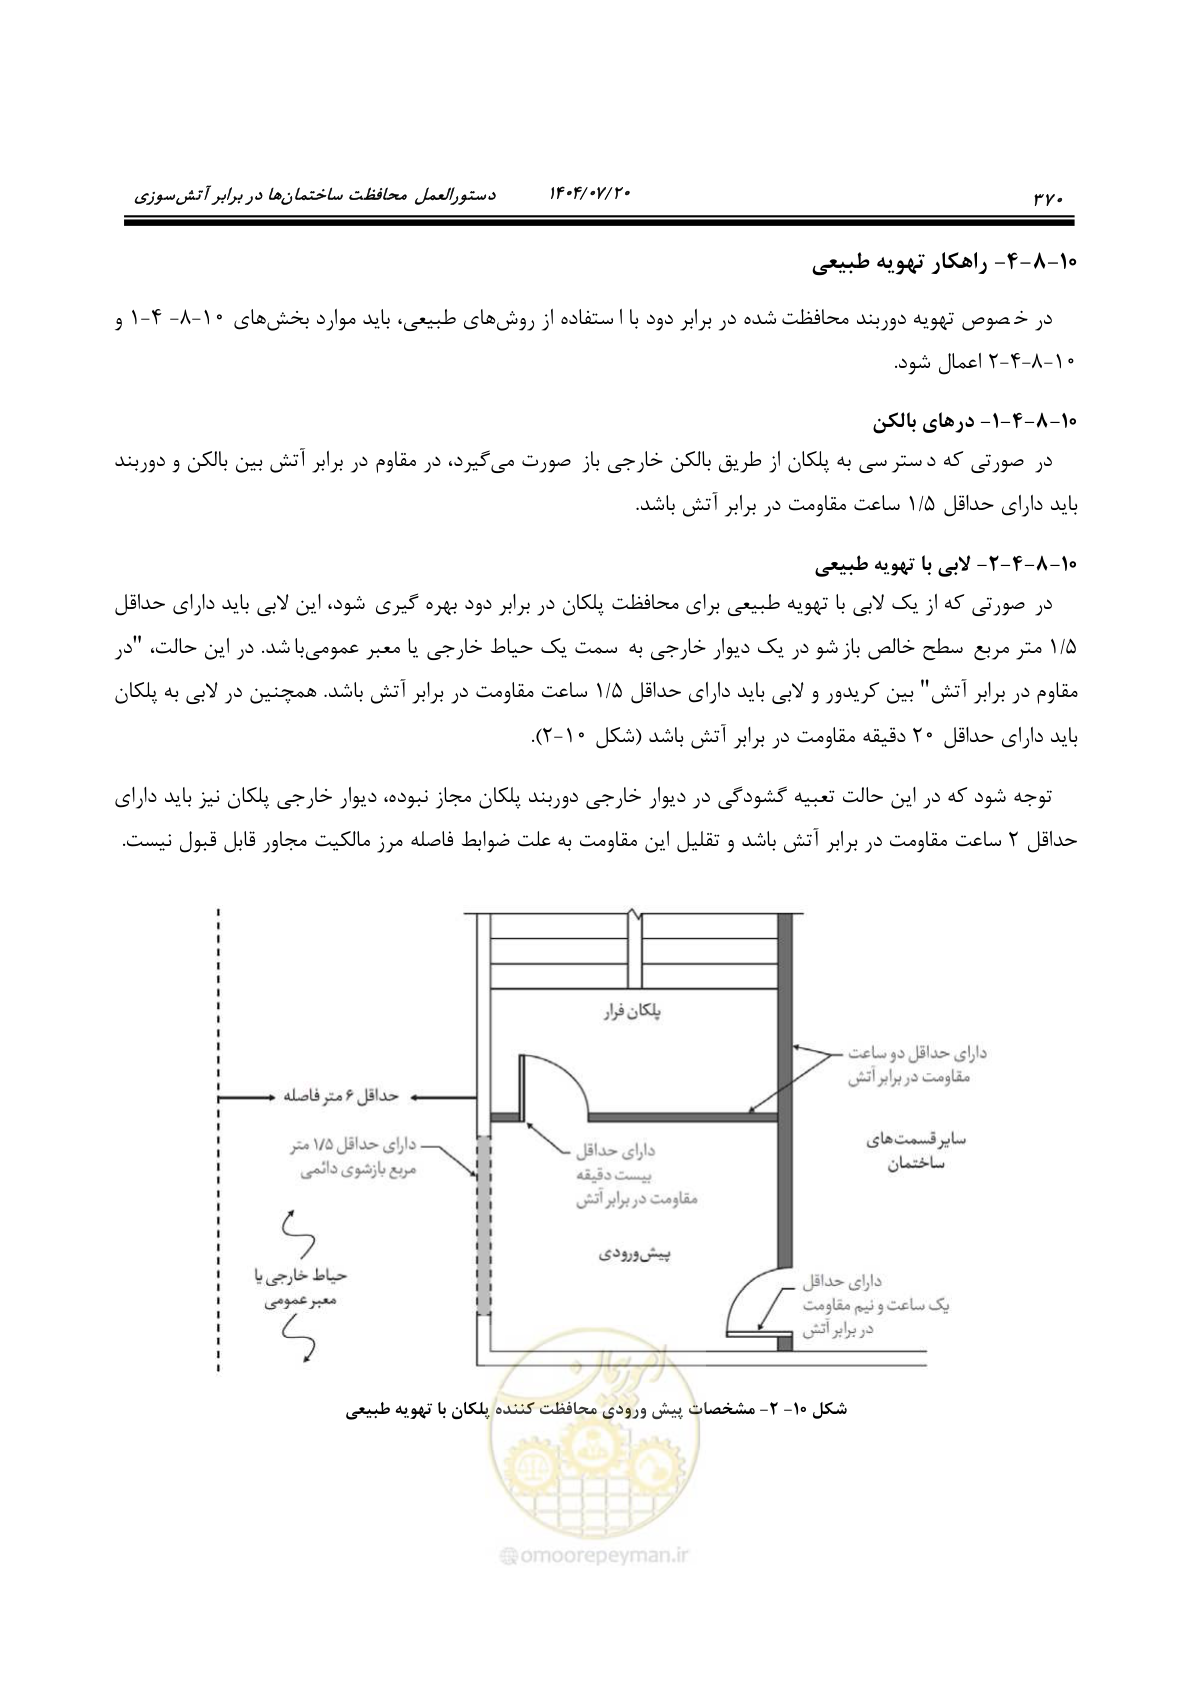 ۳۷۰ ۱۴۰۴/۰۷/۲۰ دستورالعمل محافظت ساختمان‌ها در برابر آتش‌سوزی
۱۰-۸-۴- راهکار تهویه طبیعی
در خصوص تهویه دوربند محافظت شده در برابر دود با استفاده از روش‌های طبیعی، باید موارد بخش‌های ۱۰-۸-۴-۱ و
۱۰-۸-۴-۲ اعمال شود.
۱۰-۸-۴-۱- درهای بالکن
در صورتی که دسترسی به پلکان از طریق بالکن خارجی باز صورت می‌گیرد، در مقاوم در برابر آتش بین بالکن و دوربند
باید دارای حداقل ۱/۵ ساعت مقاومت در برابر آتش باشد.
۱۰-۸-۴-۲- لابی با تهویه طبیعی
در صورتی که از یک لابی با تهویه طبیعی برای محافظت پلکان در برابر دود بهره گیری شود، این لابی باید دارای حداقل
۱/۵ متر مربع سطح خالص بازشو در یک دیوار خارجی به سمت یک حیاط خارجی یا معبر عمومی‌باشد. در این حالت، "در
مقاوم در برابر آتش" بین کریدور و لابی باید دارای حداقل ۱/۵ ساعت مقاومت در برابر آتش باشد. همچنین در لابی به پلکان
باید دارای حداقل ۲۰ دقیقه مقاومت در برابر آتش باشد (شکل ۱۰-۲).
توجه شود که در این حالت تعبیه گشودگی در دیوار خارجی دوربند پلکان مجاز نبوده، دیوار خارجی پلکان نیز باید دارای
حداقل ۲ ساعت مقاومت در برابر آتش باشد و تقلیل این مقاومت به علت ضوابط فاصله مرز مالکیت مجاور قابل قبول نیست.
پلکان فرار
دارای حداقل دو ساعت
مقاومت در برابر آتش
حداقل ۶ متر فاصله
سایر قسمت‌های
ساختمان
دارای حداقل ۱/۵ متر
مربع بازشوی دائمی
دارای حداقل
بیست دقیقه
مقاومت در برابر آتش
پیش‌ورودی
حیاط خارجی یا
معبر عمومی
دارای حداقل
یک ساعت و نیم مقاومت
در برابر آتش
امور پیمان
شکل ۱۰- ۲- مشخصات پیش ورودی محافظت کننده پلکان با تهویه طبیعی
@omoorepeyman.ir